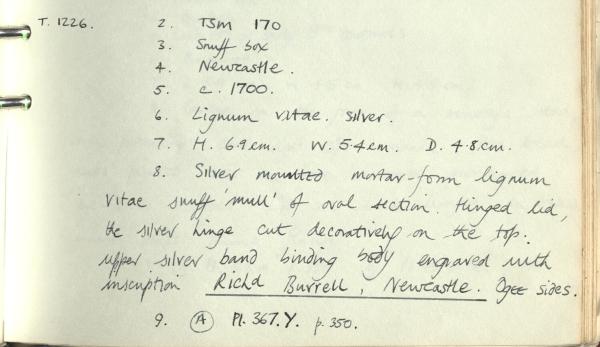 T. 1226. 2. TSM 170
3. Snuff box
4. Newcastle.
5. c. 1700.
6. Lignum vitae. silver.
7. H. 6.9cm. W. 5.4cm. D. 4.8cm.
8. Silver mounted mortar-form lignum
vitae snuff 'mull' of oval section. Hinged lid,
the silver hinge cut decoratively on the top.
upper silver band binding body engraved with
inscription Richd Burrell, Newcastle. Ogee sides.
9. A Pl. 367.Y. p. 350.